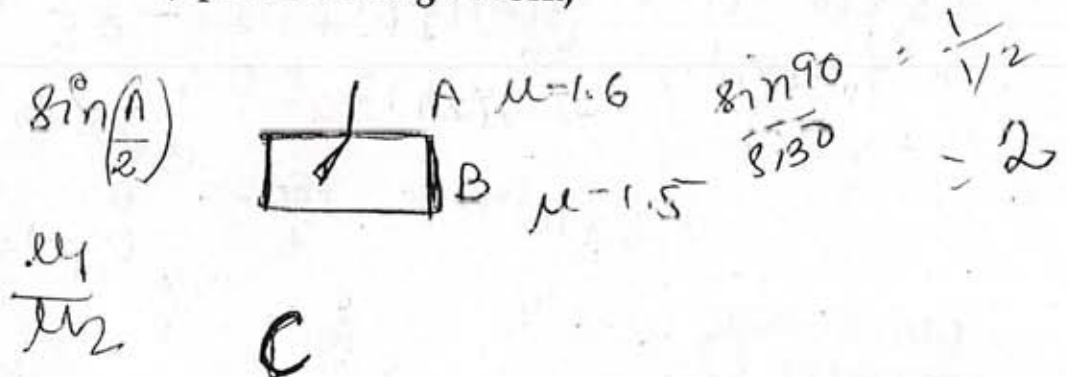 sin(π/2)
A μ-1.6
B μ-1.5
sin90 = 1
si30 1/2
= 2
μ1
μ2
C